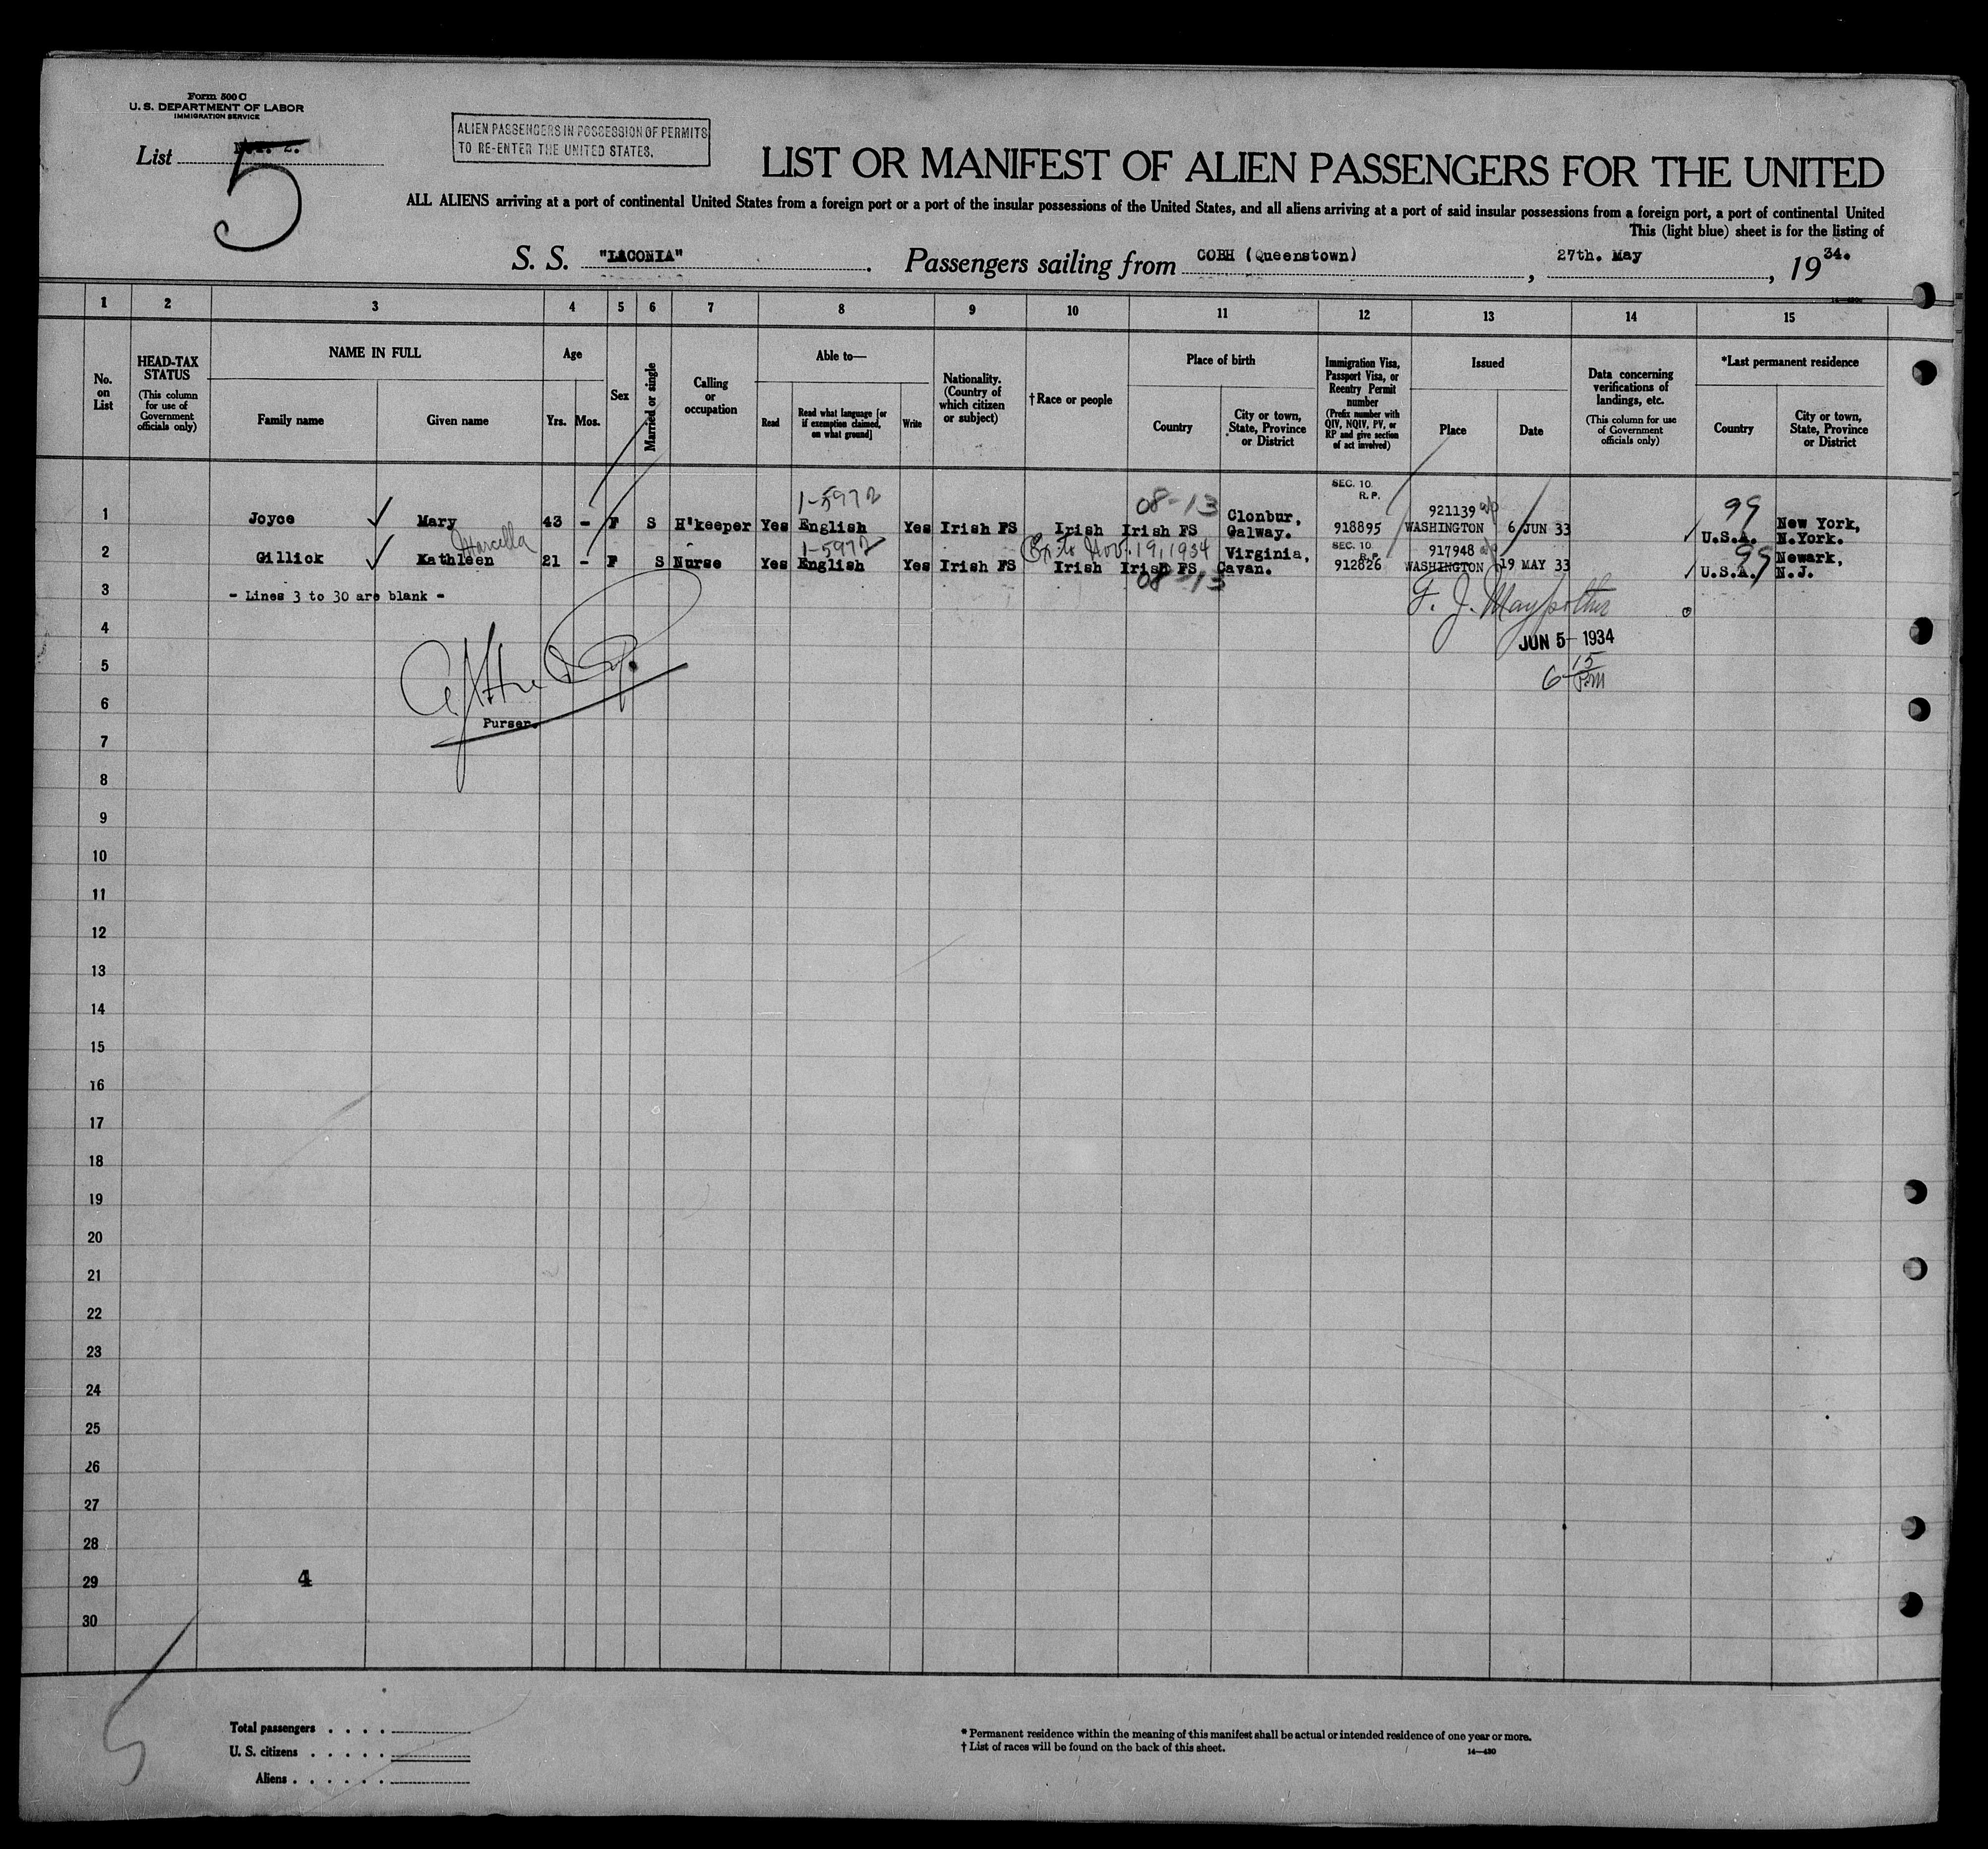 Form 500 C
U. S. DEPARTMENT OF LABOR
IMMIGRATION SERVICE
List
5
ALIEN PASSENGERS IN POSSESSION OF PERMITS
TO RE-ENTER THE UNITED STATES.
LIST OR MANIFEST OF ALIEN PASSENGERS FOR THE UNITED
ALL ALIENS arriving at a port of continental United States from a foreign port or a port of the insular possessions of the United States, and all aliens arriving at a port of said insular possessions from a foreign port, a port of continental United
This (light blue) sheet is for the listing of
S. S. "LACONIA" . Passengers sailing from COBH (Queenstown) , 27th. May , 19 34.
1 2 3 4 5 6 7 8 9 10 11 12 13 14 15
No. on List
HEAD-TAX STATUS
(This column for use of Government officials only)
NAME IN FULL
Family name
Given name
Age
Yrs. Mos.
Sex
Married or single
Calling or occupation
Able to—
Read
Read what language [or if exemption claimed, on what ground]
Write
Nationality. (Country of which citizen or subject)
†Race or people
Place of birth
Country
City or town, State, Province or District
Immigration Visa, Passport Visa, or Reentry Permit number
(Prefix number with QIV, NQIV, PV, or RP and give section of act involved)
Issued
Place
Date
Data concerning verifications of landings, etc.
(This column for use of Government officials only)
*Last permanent residence
Country
City or town, State, Province or District
1-5972 08-13 SEC. 10. R.P. 921139 99
1 Joyce Mary 43 - F S H'keeper Yes English Yes Irish FS Irish Irish FS Clonbur, Galway. 918895 WASHINGTON 6 JUN 33 U.S.A. New York, N.York.
Marcella 1-5972 Ex. to Nov. 19, 1934 SEC. 10. R.P. 917948 99
2 Gillick Kathleen 21 - F S Nurse Yes English Yes Irish FS Irish Irish FS Virginia, Cavan. 912826 WASHINGTON 19 MAY 33 U.S.A. Newark, N.J.
08-13
3 - Lines 3 to 30 are blank -
F. J. Maypother
4
JUN 5- 1934
5
6 15 P.M
6
Purser.
7
8
9
10
11
12
13
14
15
16
17
18
19
20
21
22
23
24
25
26
27
28
29 4
30
5
Total passengers . . . .
U. S. citizens . . . . .
Aliens . . . . . .
* Permanent residence within the meaning of this manifest shall be actual or intended residence of one year or more.
† List of races will be found on the back of this sheet.
14—430